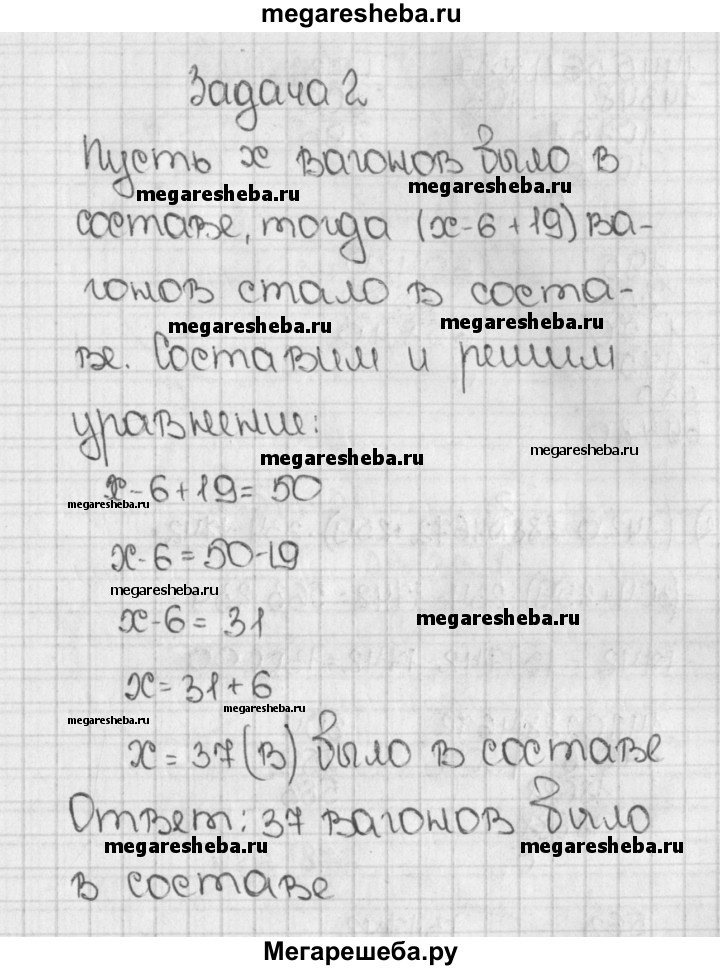 megaresheba.ru
Задача 2
Пусть x вагонов было в
megaresheba.ru megaresheba.ru
составе, тогда (x-6+19) ва-
гонов стало в соста-
megaresheba.ru megaresheba.ru
ве. Составим и решим
уравнение:
megaresheba.ru megaresheba.ru
x-6+19=50
megaresheba.ru
x-6=50-19
megaresheba.ru
x-6=31 megaresheba.ru
x=31+6
megaresheba.ru megaresheba.ru
x=37(в) было в составе
Ответ: 37 вагонов было
megaresheba.ru megaresheba.ru
в составе
Мегарешеба.ру